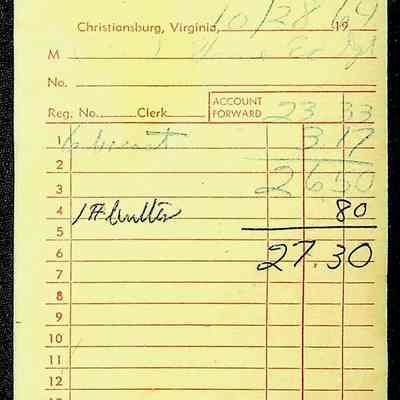 Christiansburg, Virginia, 10/28 1969
M
No.
Reg. No. Clerk ACCOUNT FORWARD 23 33
1 3.17
2
3 26 50
4 1 # butter 80
5
6 27.30
7
8
9
10
11
12